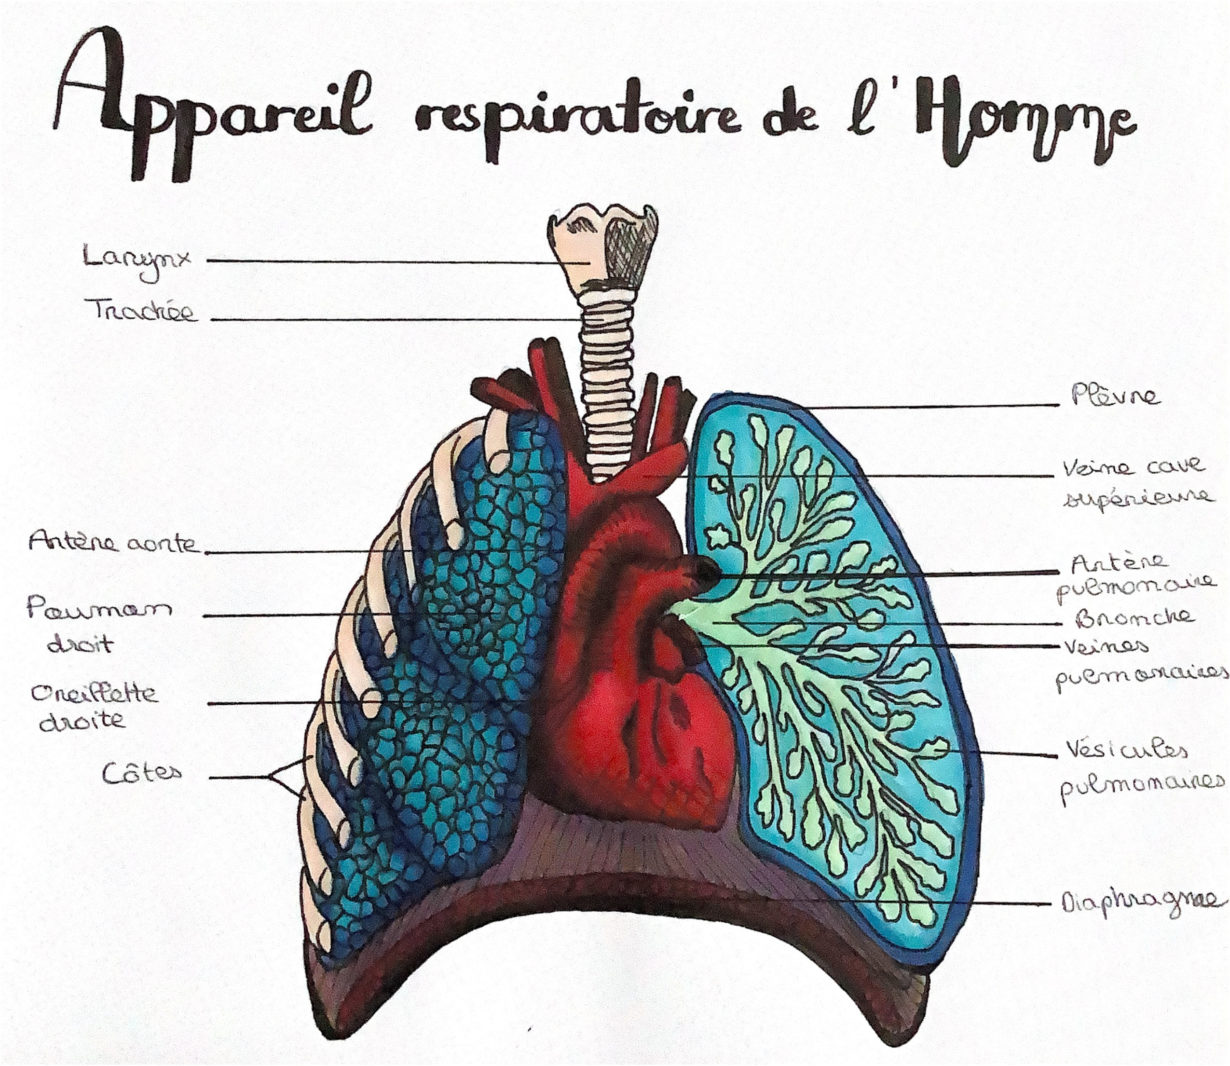 Appareil respiratoire de l'Homme
Larynx
Trachée
Artère aorte
Poumon
droit
Oreillette
droite
Côtes
Plèvre
Veine cave
supérieure
Artère
pulmonaire
Bronche
Veines
pulmonaires
Vésicules
pulmonaires
Diaphragme